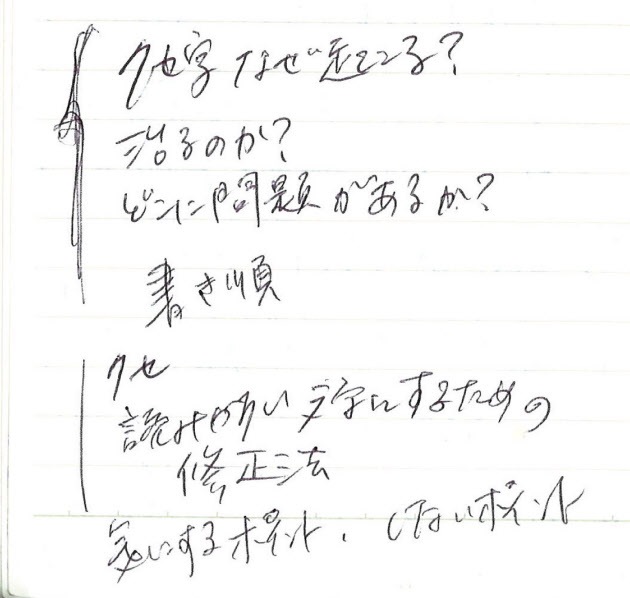 クセ字なぜ起こる?
治るのか?
どこに問題があるか?
書き順
クセ
読みやすい文字にするための
修正法
気にするポイント、しないポイント